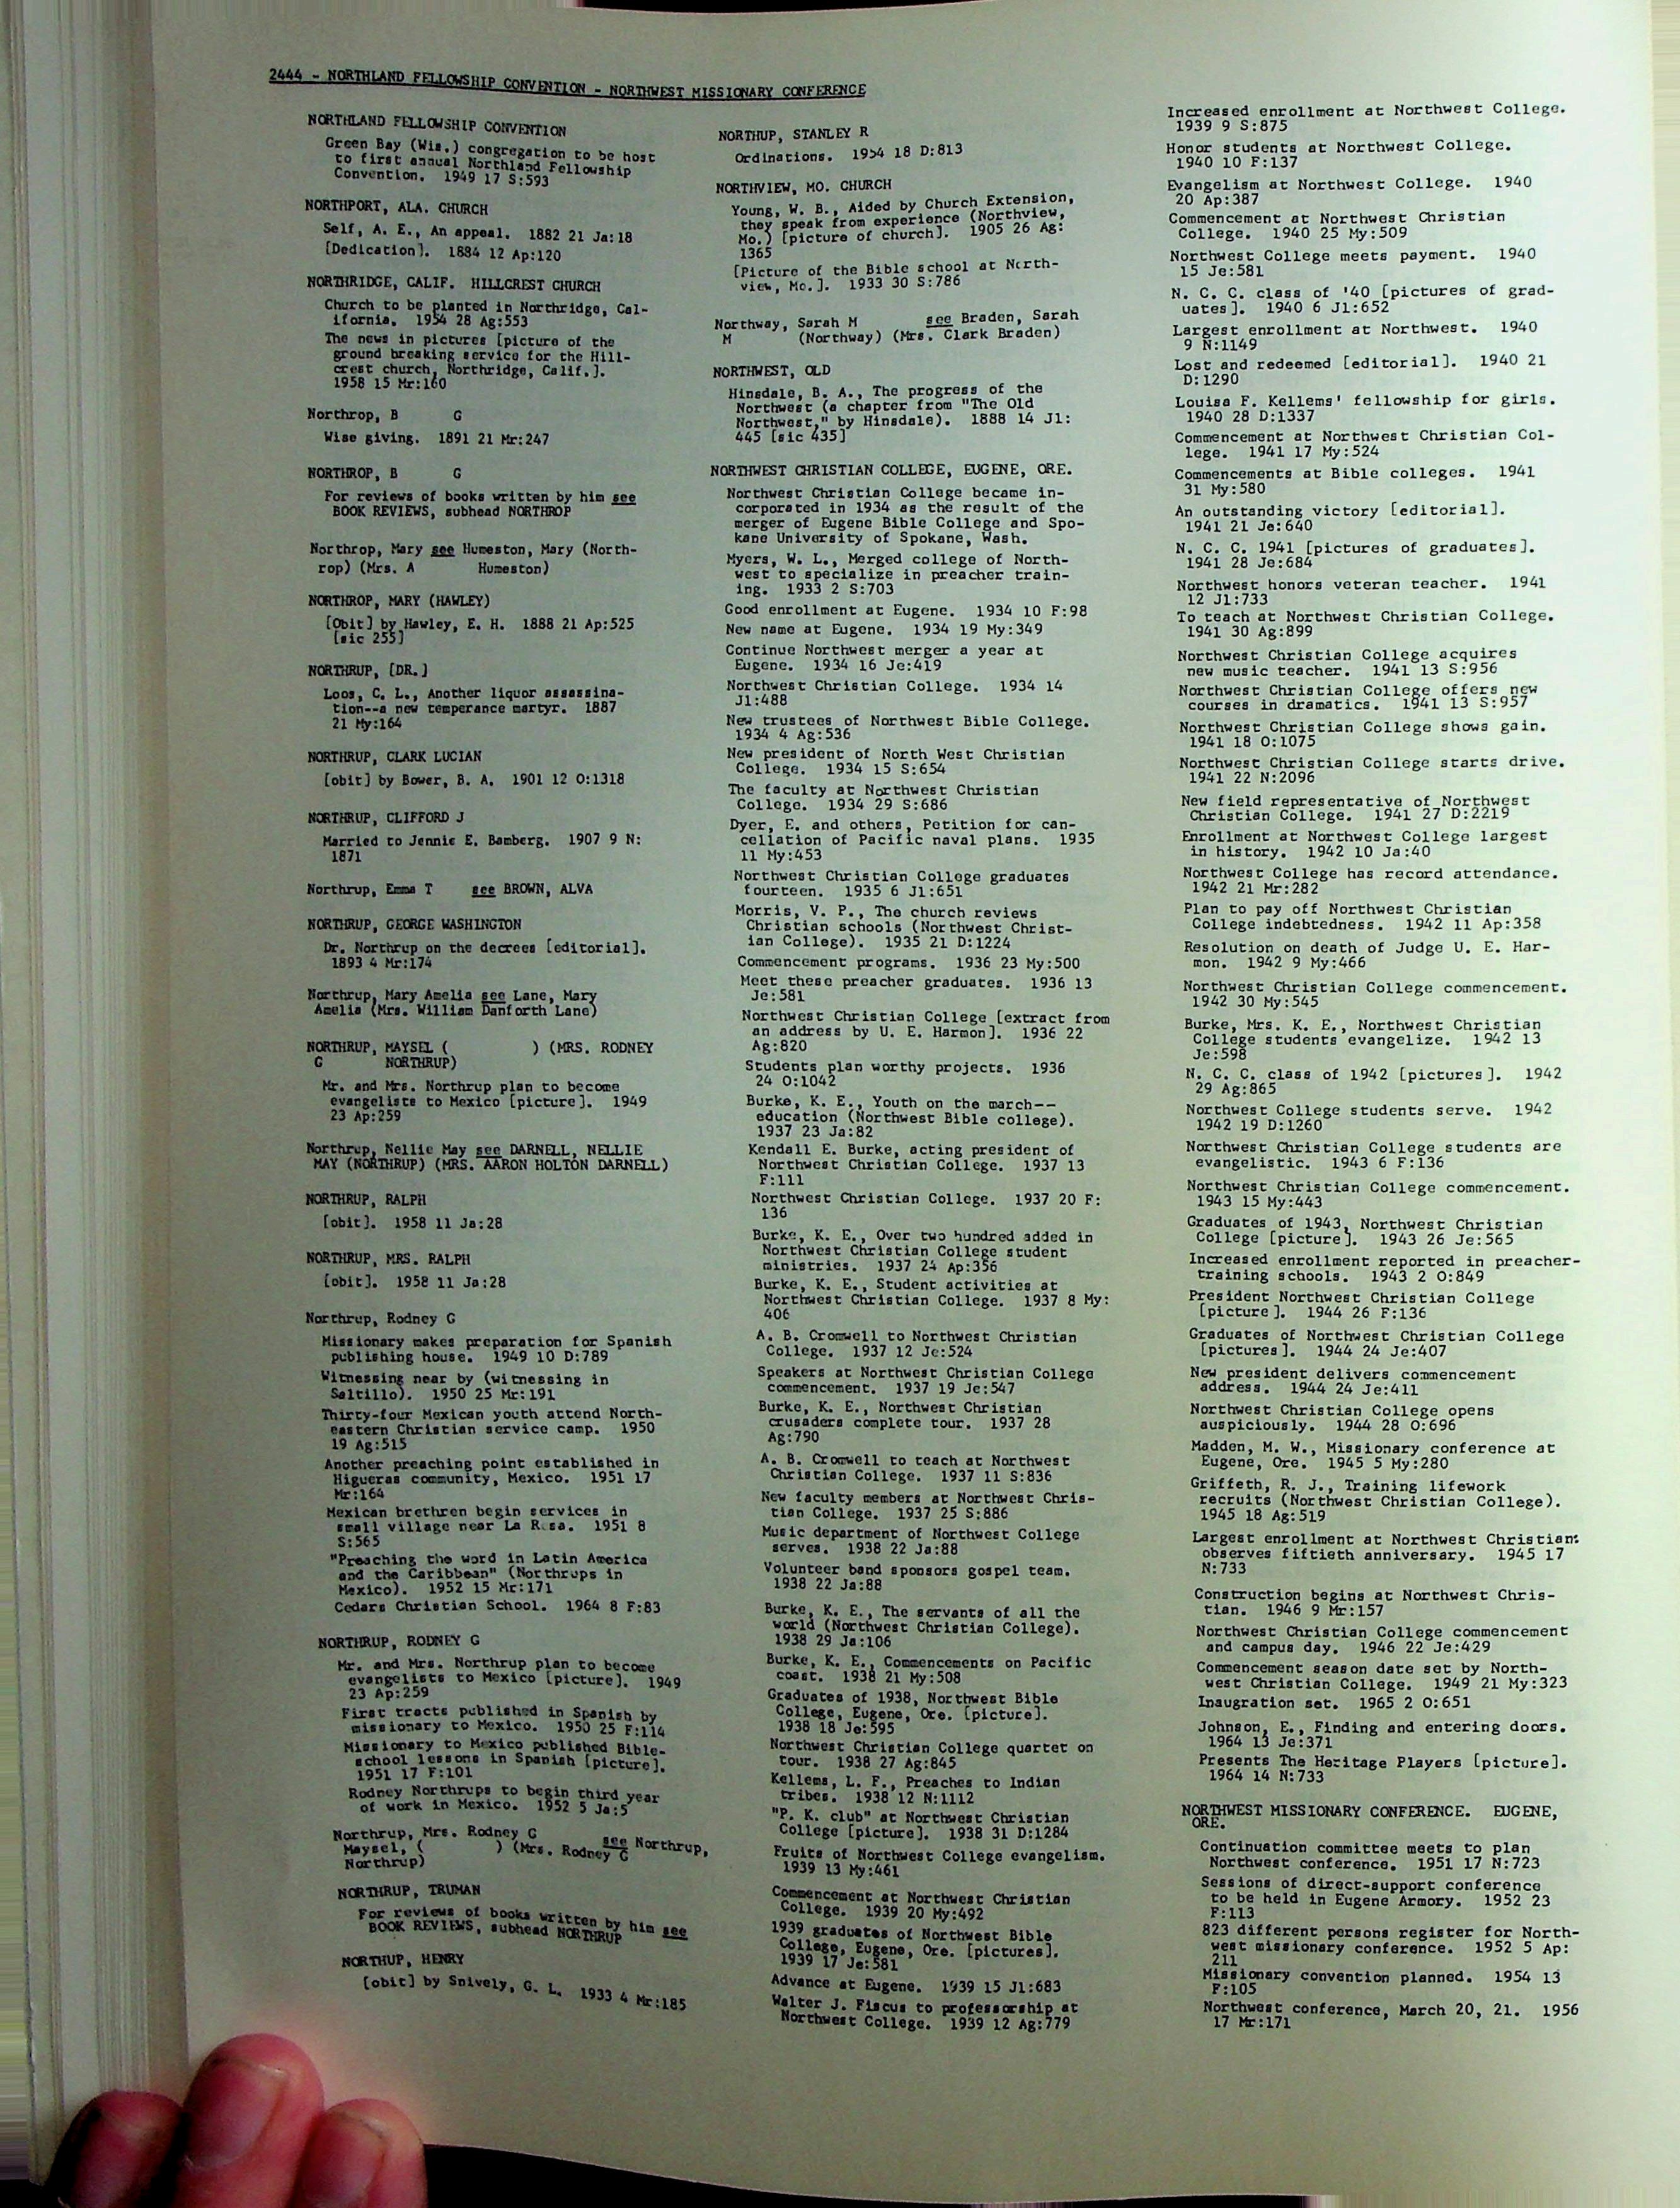 2444 - NORTHLAND FELLOWSHIP CONVENTION - NORTHWEST MISSIONARY CONFERENCE
NORTHLAND FELLOWSHIP CONVENTION
Green Bay (Wis.) congregation to be host
to first annual Northland Fellowship
Convention. 1949 17 S:593
NORTHPORT, ALA. CHURCH
Self, A. E., An appeal. 1882 21 Ja:18
[Dedication]. 1884 12 Ap:120
NORTHRIDGE, CALIF. HILLCREST CHURCH
Church to be planted in Northridge, Cal-
ifornia. 1954 28 Ag:553
The news in pictures [picture of the
ground breaking service for the Hill-
crest church, Northridge, Calif.].
1958 15 Mr:160
Northrop, B G
Wise giving. 1891 21 Mr:247
NORTHROP, B G
For reviews of books written by him see
BOOK REVIEWS, subhead NORTHROP
Northrop, Mary see Humeston, Mary (North-
rop) (Mrs. A Humeston)
NORTHROP, MARY (HAWLEY)
[Obit] by Hawley, E. H. 1888 21 Ap:525
[sic 255]
NORTHRUP, [DR.]
Loos, C. L., Another liquor assassina-
tion--a new temperance martyr. 1887
21 My:164
NORTHRUP, CLARK LUCIAN
[obit] by Bower, B. A. 1901 12 O:1318
NORTHRUP, CLIFFORD J
Married to Jennie E. Bamberg. 1907 9 N:
1871
Northrup, Emma T see BROWN, ALVA
NORTHRUP, GEORGE WASHINGTON
Dr. Northrup on the decrees [editorial].
1893 4 Mr:174
Northrup, Mary Amelia see Lane, Mary
Amelia (Mrs. William Danforth Lane)
NORTHRUP, MAYSEL ( ) (MRS. RODNEY
G NORTHRUP)
Mr. and Mrs. Northrup plan to become
evangelists to Mexico [picture]. 1949
23 Ap:259
Northrup, Nellie May see DARNELL, NELLIE
MAY (NORTHRUP) (MRS. AARON HOLTON DARNELL)
NORTHRUP, RALPH
[obit]. 1958 11 Ja:28
NORTHRUP, MRS. RALPH
[obit]. 1958 11 Ja:28
Northrup, Rodney G
Missionary makes preparation for Spanish
publishing house. 1949 10 D:789
Witnessing near by (witnessing in
Saltillo). 1950 25 Mr:191
Thirty-four Mexican youth attend North-
eastern Christian service camp. 1950
19 Ag:515
Another preaching point established in
Higueras community, Mexico. 1951 17
Mr:164
Mexican brethren begin services in
small village near La Rosa. 1951 8
S:565
"Preaching the word in Latin America
and the Caribbean" (Northrups in
Mexico). 1952 15 Mr:171
Cedars Christian School. 1964 8 F:83
NORTHRUP, RODNEY G
Mr. and Mrs. Northrup plan to become
evangelists to Mexico [picture]. 1949
23 Ap:259
First tracts published in Spanish by
missionary to Mexico. 1950 25 F:114
Missionary to Mexico published Bible-
school lessons in Spanish [picture].
1951 17 F:101
Rodney Northrups to begin third year
of work in Mexico. 1952 5 Ja:5
Northrup, Mrs. Rodney G see Northrup,
Maysel, ( ) (Mrs. Rodney G
Northrup)
NORTHRUP, TRUMAN
For reviews of books written by him see
BOOK REVIEWS, subhead NORTHRUP
NORTHUP, HENRY
[obit] by Snively, G. L. 1933 4 Mr:185
NORTHUP, STANLEY R
Ordinations. 1954 18 D:813
NORTHVIEW, MO. CHURCH
Young, W. B., Aided by Church Extension,
they speak from experience (Northview,
Mo.) [picture of church]. 1905 26 Ag:
1365
[Picture of the Bible school at North-
view, Mo.]. 1933 30 S:786
Northway, Sarah M see Braden, Sarah
M (Northway) (Mrs. Clark Braden)
NORTHWEST, OLD
Hinsdale, B. A., The progress of the
Northwest (a chapter from "The Old
Northwest," by Hinsdale). 1888 14 Jl:
445 [sic 435]
NORTHWEST CHRISTIAN COLLEGE, EUGENE, ORE.
Northwest Christian College became in-
corporated in 1934 as the result of the
merger of Eugene Bible College and Spo-
kane University of Spokane, Wash.
Myers, W. L., Merged college of North-
west to specialize in preacher train-
ing. 1933 2 S:703
Good enrollment at Eugene. 1934 10 F:98
New name at Eugene. 1934 19 My:349
Continue Northwest merger a year at
Eugene. 1934 16 Je:419
Northwest Christian College. 1934 14
Jl:488
New trustees of Northwest Bible College.
1934 4 Ag:536
New president of North West Christian
College. 1934 15 S:654
The faculty at Northwest Christian
College. 1934 29 S:686
Dyer, E. and others, Petition for can-
cellation of Pacific naval plans. 1935
11 My:453
Northwest Christian College graduates
fourteen. 1935 6 Jl:651
Morris, V. P., The church reviews
Christian schools (Northwest Christ-
ian College). 1935 21 D:1224
Commencement programs. 1936 23 My:500
Meet these preacher graduates. 1936 13
Je:581
Northwest Christian College [extract from
an address by U. E. Harmon]. 1936 22
Ag:820
Students plan worthy projects. 1936
24 O:1042
Burke, K. E., Youth on the march--
education (Northwest Bible college).
1937 23 Ja:82
Kendall E. Burke, acting president of
Northwest Christian College. 1937 13
F:111
Northwest Christian College. 1937 20 F:
136
Burke, K. E., Over two hundred added in
Northwest Christian College student
ministries. 1937 24 Ap:356
Burke, K. E., Student activities at
Northwest Christian College. 1937 8 My:
406
A. B. Cromwell to Northwest Christian
College. 1937 12 Je:524
Speakers at Northwest Christian College
commencement. 1937 19 Je:547
Burke, K. E., Northwest Christian
crusaders complete tour. 1937 28
Ag:790
A. B. Cromwell to teach at Northwest
Christian College. 1937 11 S:836
New faculty members at Northwest Chris-
tian College. 1937 25 S:886
Music department of Northwest College
serves. 1938 22 Ja:88
Volunteer band sponsors gospel team.
1938 22 Ja:88
Burke, K. E., The servants of all the
world (Northwest Christian College).
1938 29 Ja:106
Burke, K. E., Commencements on Pacific
coast. 1938 21 My:508
Graduates of 1938, Northwest Bible
College, Eugene, Ore. [picture].
1938 18 Je:595
Northwest Christian College quartet on
tour. 1938 27 Ag:845
Kellems, L. F., Preaches to Indian
tribes. 1938 12 N:1112
"P. K. club" at Northwest Christian
College [picture]. 1938 31 D:1284
Fruits of Northwest College evangelism.
1939 13 My:461
Commencement at Northwest Christian
College. 1939 20 My:492
1939 graduates of Northwest Bible
College, Eugene, Ore. [pictures].
1939 17 Je:581
Advance at Eugene. 1939 15 Jl:683
Walter J. Fiscus to professorship at
Northwest College. 1939 12 Ag:779
Increased enrollment at Northwest College.
1939 9 S:875
Honor students at Northwest College.
1940 10 F:137
Evangelism at Northwest College. 1940
20 Ap:387
Commencement at Northwest Christian
College. 1940 25 My:509
Northwest College meets payment. 1940
15 Je:581
N. C. C. class of '40 [pictures of grad-
uates]. 1940 6 Jl:652
Largest enrollment at Northwest. 1940
9 N:1149
Lost and redeemed [editorial]. 1940 21
D:1290
Louisa F. Kellems' fellowship for girls.
1940 28 D:1337
Commencement at Northwest Christian Col-
lege. 1941 17 My:524
Commencements at Bible colleges. 1941
31 My:580
An outstanding victory [editorial].
1941 21 Je:640
N. C. C. 1941 [pictures of graduates].
1941 28 Je:684
Northwest honors veteran teacher. 1941
12 Jl:733
To teach at Northwest Christian College.
1941 30 Ag:899
Northwest Christian College acquires
new music teacher. 1941 13 S:956
Northwest Christian College offers new
courses in dramatics. 1941 13 S:957
Northwest Christian College shows gain.
1941 18 O:1075
Northwest Christian College starts drive.
1941 22 N:2096
New field representative of Northwest
Christian College. 1941 27 D:2219
Enrollment at Northwest College largest
in history. 1942 10 Ja:40
Northwest College has record attendance.
1942 21 Mr:282
Plan to pay off Northwest Christian
College indebtedness. 1942 11 Ap:358
Resolution on death of Judge U. E. Har-
mon. 1942 9 My:466
Northwest Christian College commencement.
1942 30 My:545
Burke, Mrs. K. E., Northwest Christian
College students evangelize. 1942 13
Je:598
N. C. C. class of 1942 [pictures]. 1942
29 Ag:865
Northwest College students serve. 1942
1942 19 D:1260
Northwest Christian College students are
evangelistic. 1943 6 F:136
Northwest Christian College commencement.
1943 15 My:443
Graduates of 1943, Northwest Christian
College [picture]. 1943 26 Je:565
Increased enrollment reported in preacher-
training schools. 1943 2 O:849
President Northwest Christian College
[picture]. 1944 26 F:136
Graduates of Northwest Christian College
[pictures]. 1944 24 Je:407
New president delivers commencement
address. 1944 24 Je:411
Northwest Christian College opens
auspiciously. 1944 28 O:696
Madden, M. W., Missionary conference at
Eugene, Ore. 1945 5 My:280
Griffeth, R. J., Training lifework
recruits (Northwest Christian College).
1945 18 Ag:519
Largest enrollment at Northwest Christian:
observes fiftieth anniversary. 1945 17
N:733
Construction begins at Northwest Chris-
tian. 1946 9 Mr:157
Northwest Christian College commencement
and campus day. 1946 22 Je:429
Commencement season date set by North-
west Christian College. 1949 21 My:323
Inaugration set. 1965 2 O:651
Johnson, E., Finding and entering doors.
1964 13 Je:371
Presents The Heritage Players [picture].
1964 14 N:733
NORTHWEST MISSIONARY CONFERENCE. EUGENE,
ORE.
Continuation committee meets to plan
Northwest conference. 1951 17 N:723
Sessions of direct-support conference
to be held in Eugene Armory. 1952 23
F:113
823 different persons register for North-
west missionary conference. 1952 5 Ap:
211
Missionary convention planned. 1954 13
F:105
Northwest conference, March 20, 21. 1956
17 Mr:171